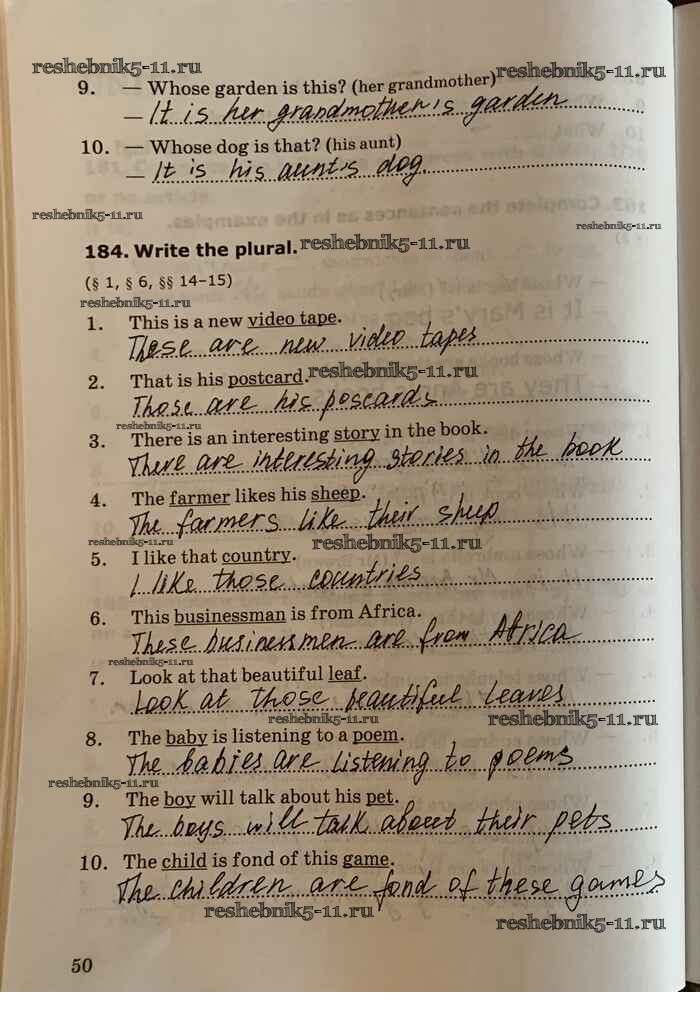 reshebnik5-11.ru
9. — Whose garden is this? (her grandmother) reshebnik5-11.ru
— It is her grandmother's garden
10. — Whose dog is that? (his aunt)
— It is his aunt's dog.
reshebnik5-11.ru
reshebnik5-11.ru
184. Write the plural. reshebnik5-11.ru
(§ 1, § 6, §§ 14–15)
reshebnik5-11.ru
1. This is a new video tape.
These are new video tapes
2. That is his postcard. reshebnik5-11.ru
Those are his poscards
reshebnik5-11.ru
3. There is an interesting story in the book.
There are interesting stories in the book
4. The farmer likes his sheep.
The farmers like their sheep
reshebnik5-11.ru
5. I like that country.
I like those countries
6. This businessman is from Africa.
These businessmen are from Africa
reshebnik5-11.ru
7. Look at that beautiful leaf.
Look at those beautiful leaves
reshebnik5-11.ru reshebnik5-11.ru
8. The baby is listening to a poem.
The babies are listening to poems
reshebnik5-11.ru
9. The boy will talk about his pet.
The boys will talk about their pets
10. The child is fond of this game.
The children are fond of these games
reshebnik5-11.ru
reshebnik5-11.ru
50